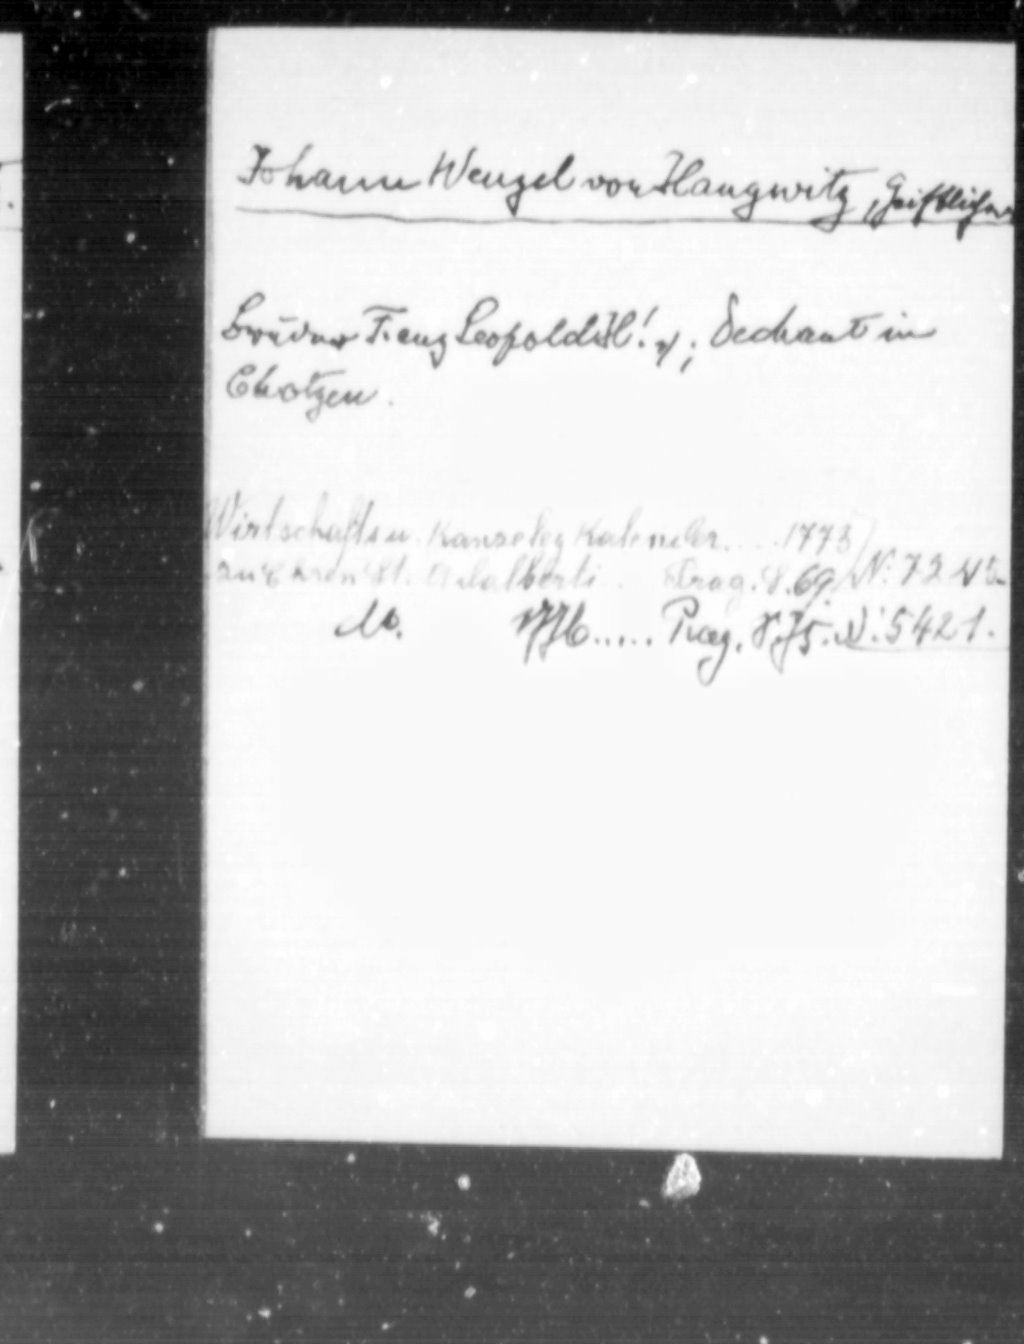 Johann Wenzel von Haugwitz, Geistlicher
Bruder Franz Leopolds H!; Dechant in
Chotzen.
Wirtschafts u. Kanzeley Kalender....1773
zu Ehren St. Adalberti. Prag. S. 69. N: 7245.
do. ..... Prag. S. 75. N: 5421.